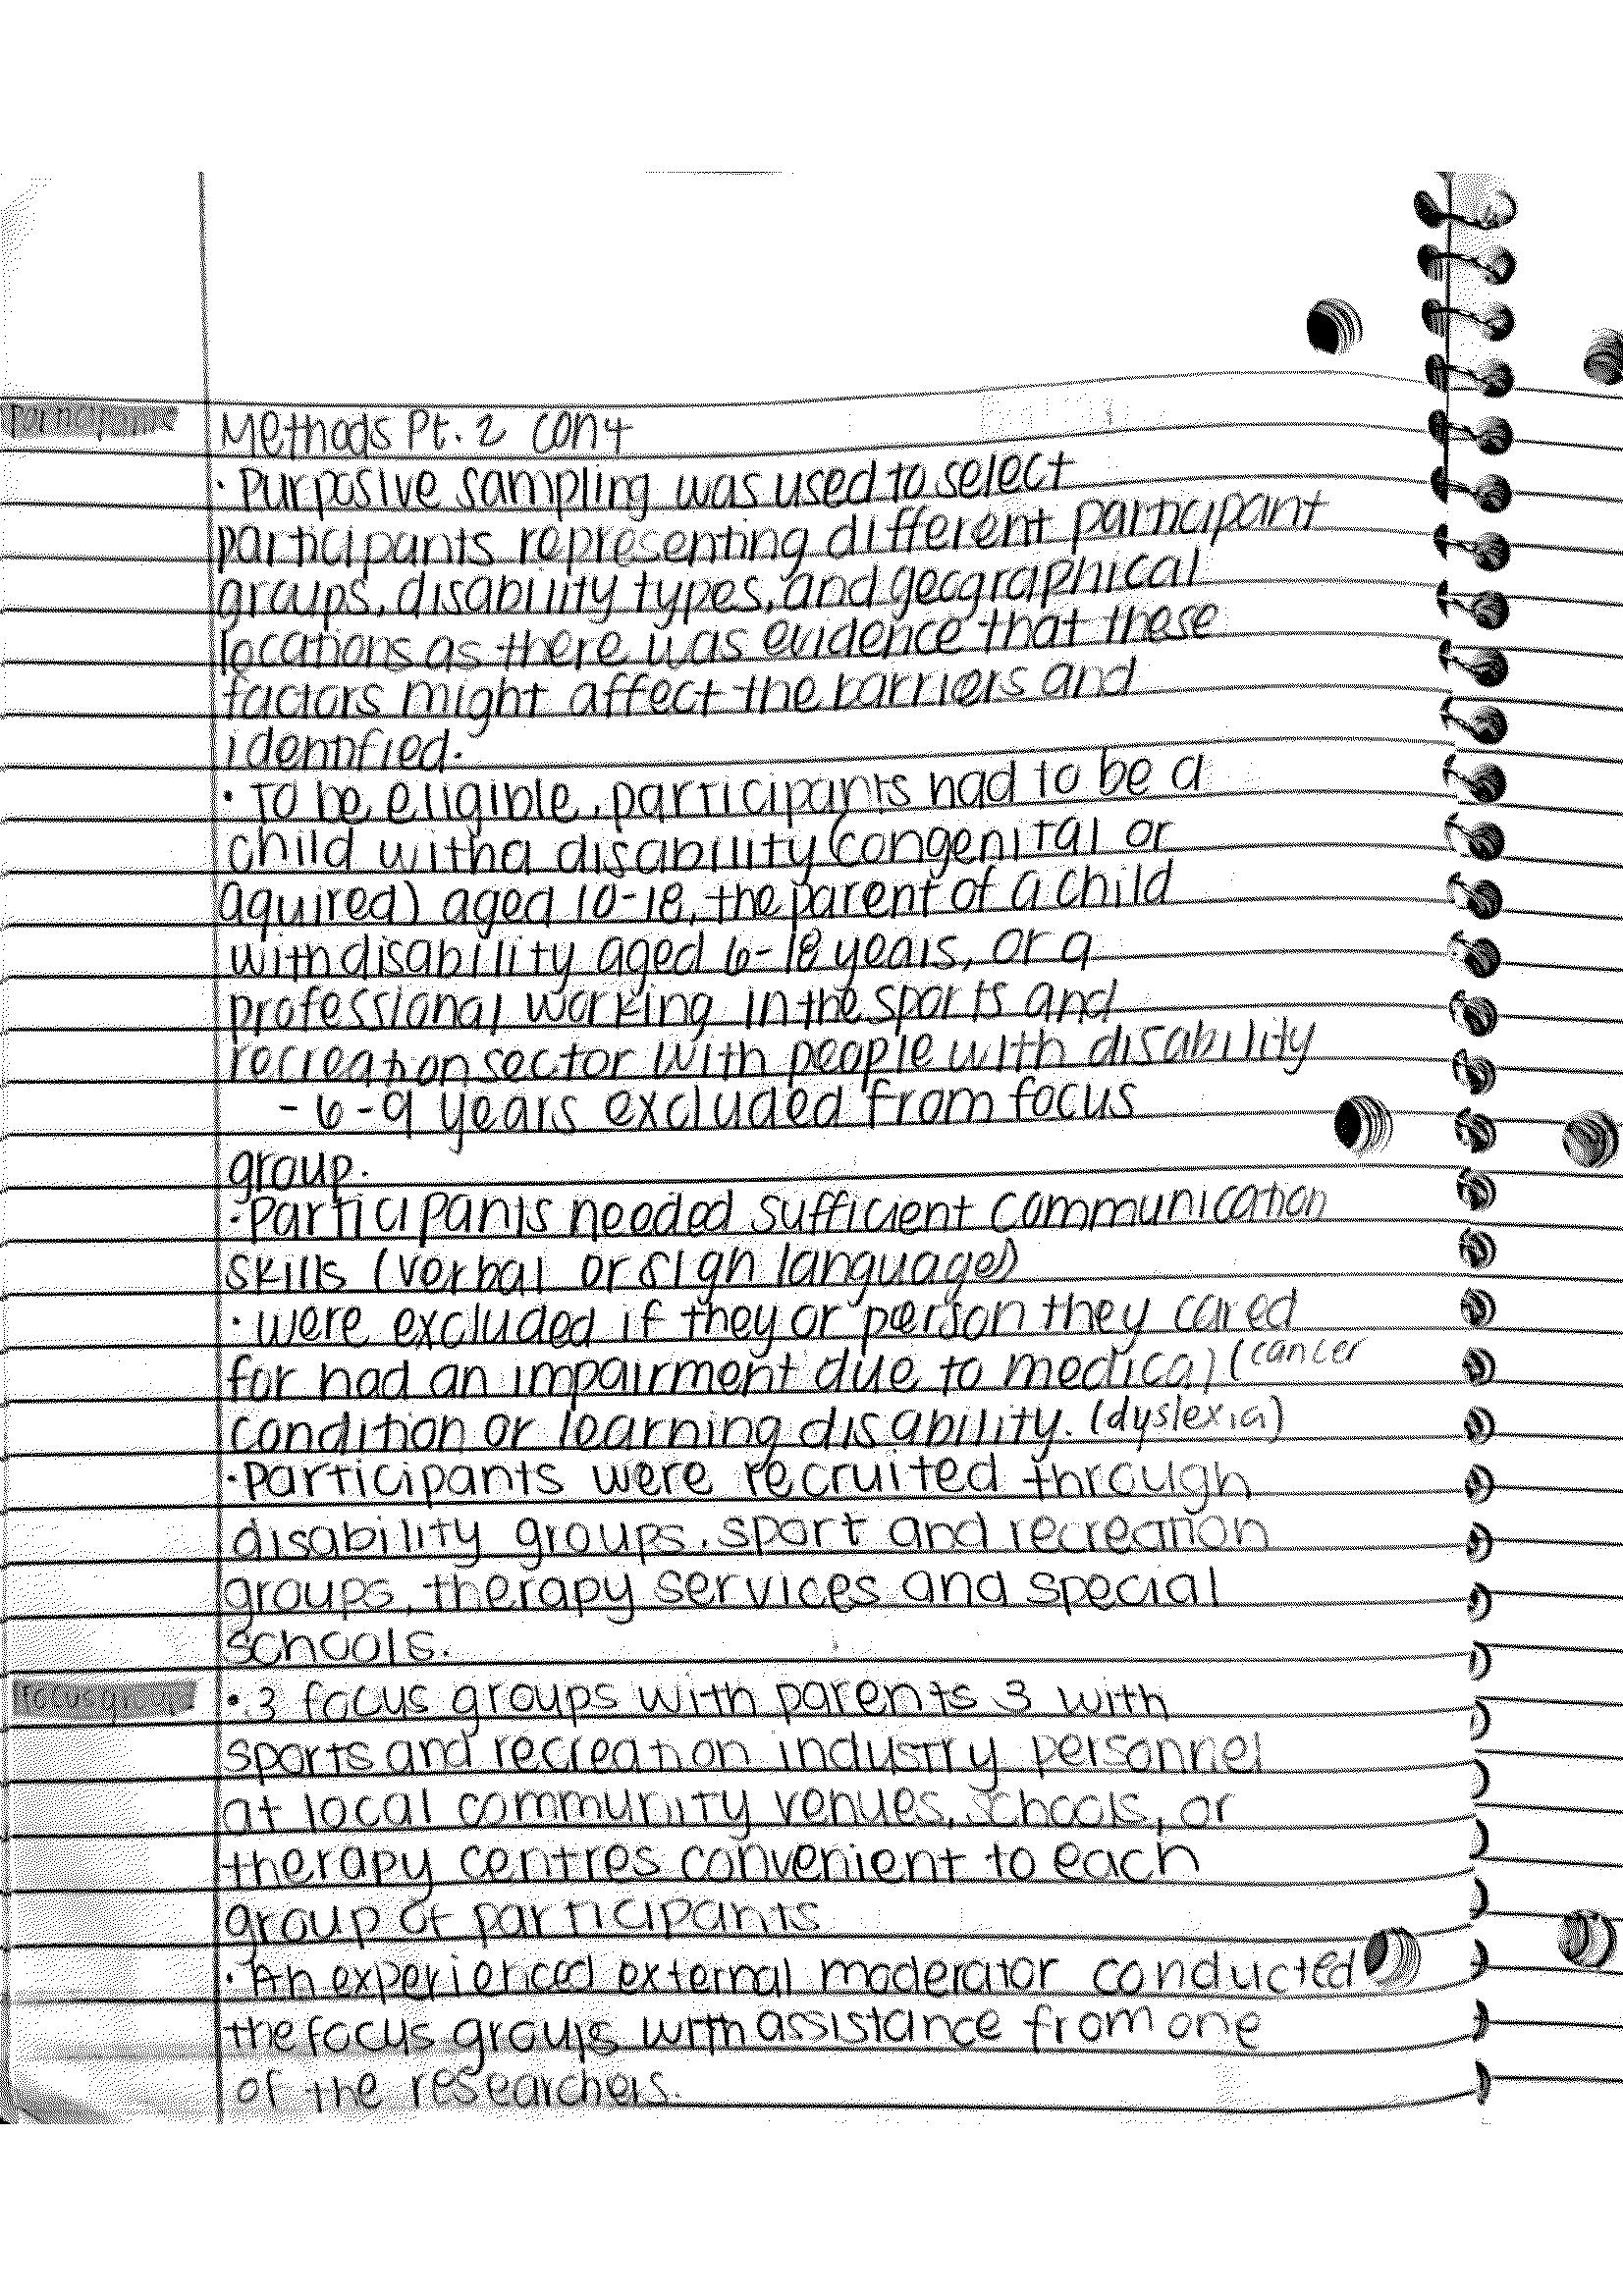 Participants
Methods Pt. 2 cont
· Purposive sampling was used to select
participants representing different participant
groups, disability types, and geographical
locations as there was evidence that these
factors might affect the barriers and
identified.
· To be eligible, participants had to be a
child with a disability (congenital or
aquired) aged 10-18, the parent of a child
with disability aged 6-18 years, or a
professional working in the sports and
recreation sector with people with disability
- 6-9 years excluded from focus
group.
· Participants needed sufficient communication
skills (verbal or sign language)
· were excluded if they or person they cared
for had an impairment due to medical (cancer
condition or learning disability. (dyslexia)
· Participants were recruited through
disability groups, sport and recreation
groups, therapy services and special
schools.
Focus groups
· 3 focus groups with parents 3 with
sports and recreation industry personnel
at local community venues, schools, or
therapy centres convenient to each
group of participants
· An experienced external moderator conducted
the focus groups with assistance from one
of the researchers.